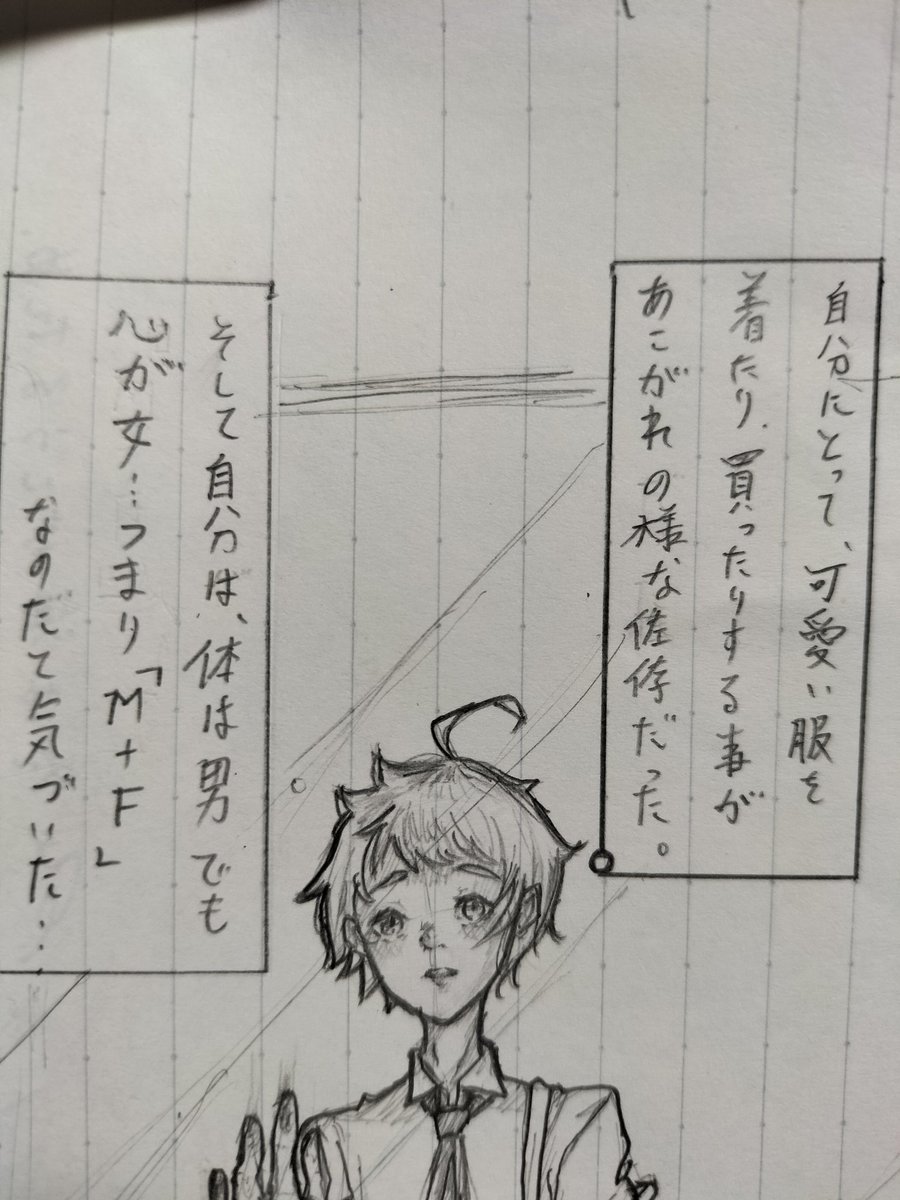 自分にとって、可愛い服を
着たり、買ったりする事が
あこがれの様な依存だった。
そして自分は、体は男でも
心が女…つまり「M+F」
なのだて気づいた…